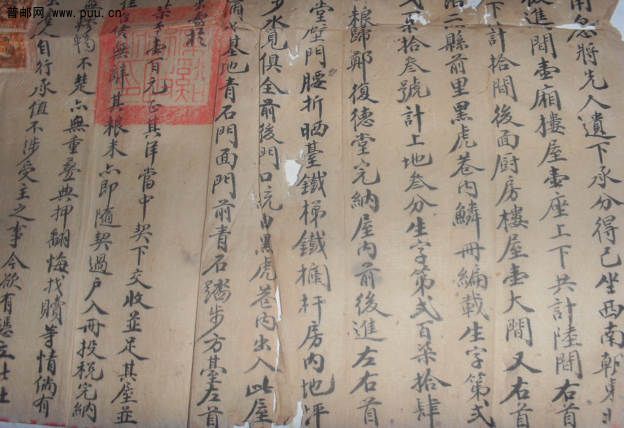 普邮网 www.puu.cn
用急将先人遗下承分得己坐西南朝東北
進間壹廂樓屋壹座上下共計陸間右首
下計拾間後面厨房樓屋壹大間又右首
治三縣前里黑虎巷内鱗册編載生字第弍
弍柒拾叁號計上地叁分生字第弍百柒拾肆
粮歸鄭復德堂完納屋内前後進左右首
堂壁門腰折晒臺鐵梯鐵攔杆房内地坪
水見俱全前後門口一宂由黑虎巷内出入此屋
基地青石門面門前青石踏步方臺左首
壹百元正其洋當中契下交收並足其屋並
無辞其粮未亦即随契過户入册投税完納
不楚亦無重叠典押翻悔找贖等情倘有
人自行承值不涉受主之事今欲有憑立